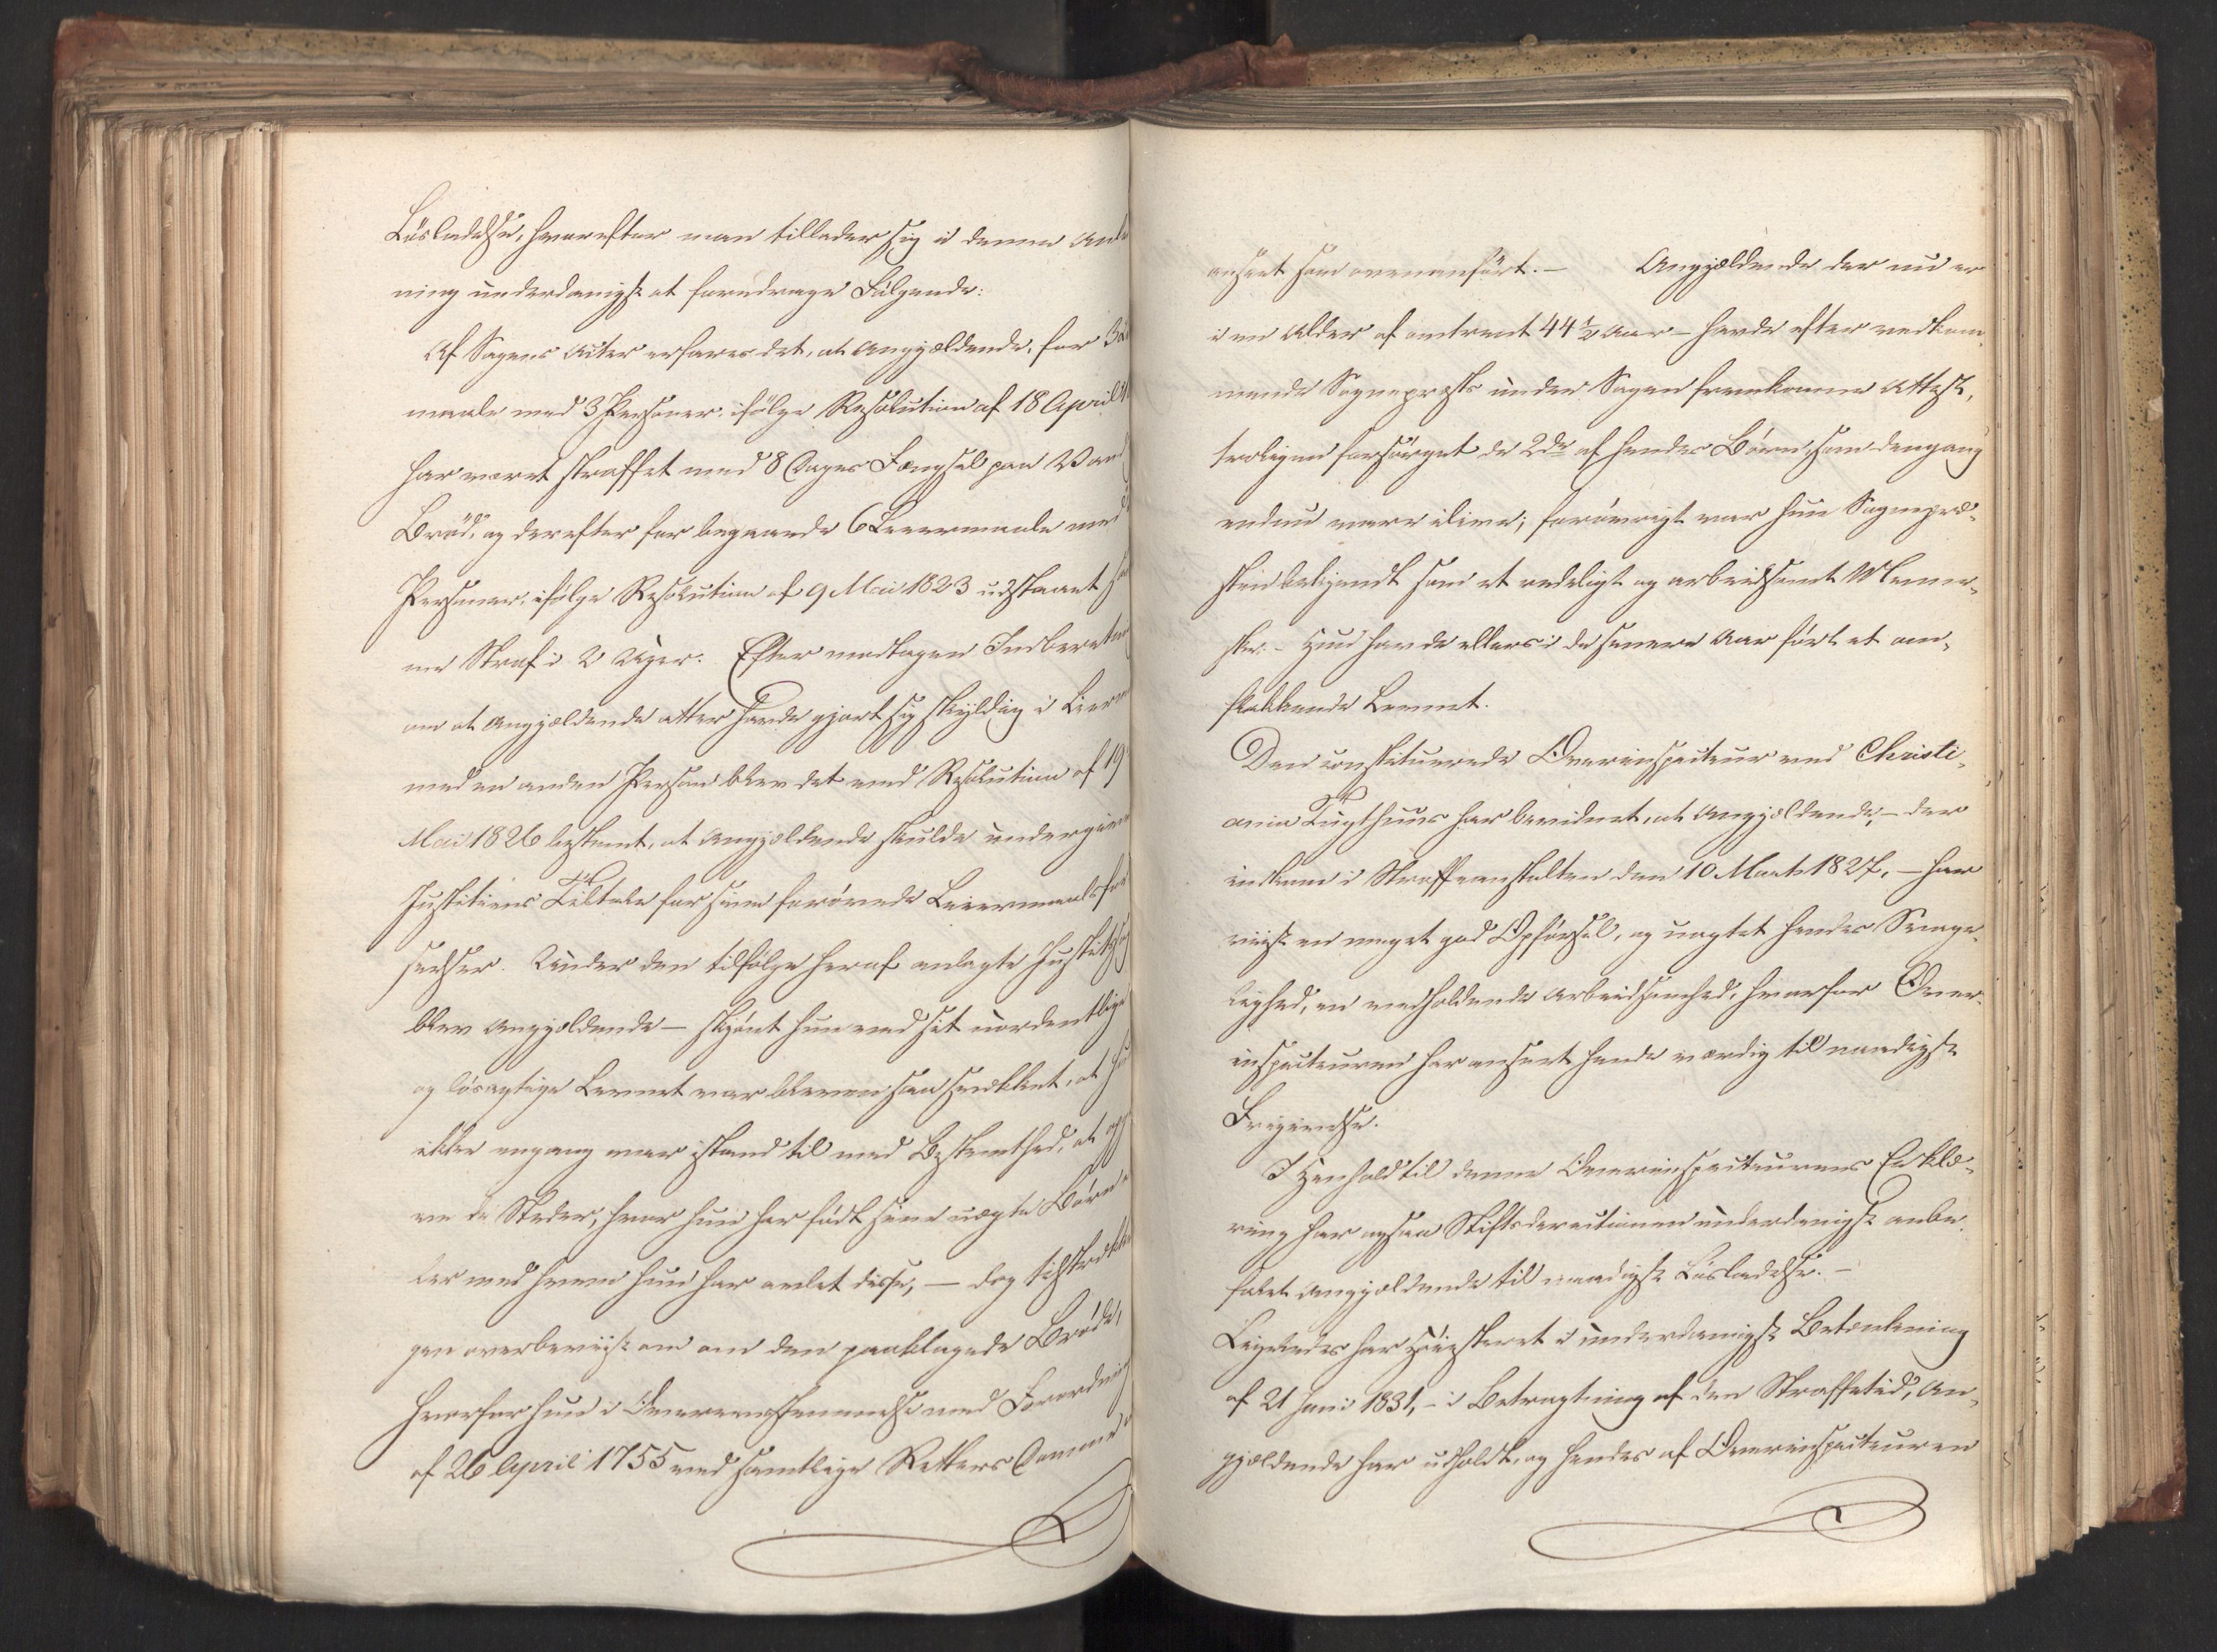 Løsladelse, hvorefter man tillader sig i denne Anle
ning underdanigst at foredrage Følgende:
Af Sagens Acter erfares det, at Angjældende, for
maale med 3 Personer, ifølge Resolution af 18 April
har været straffet med 8 Dages Fængsel paa Vand
Brød, og derefter for begaaede 6 Leiermaale med
Personer, ifølge Resolution af 9 Mai 1823 udstaaet
me Straf i 2 Uger. Efter modtagen Indberetni
om at Angjældende atter havde gjort sig skyldig i Leierm
med en anden Person blev det ved Resolution af 19
Mai 1826 bestemt, at Angjældende skulde undergives
Justitiens Tiltale for sine forøvede Leiermaalsfor
seelser. Under den tilfølge heraf anlagte Justitssag
blev Angjældende – skjønt hun ved sit uordentlige
og løsagtige Levnet var bleven saa svækket, at hu
ikke engang var istand til med Bestemthed, at opgi
ve de Steder, hvor hun har født sine uægte Børn
ler med hvem hun har avlet disse, – dog tilstrække
gen overbeviist om den paaklagede Brøde,
hvorfor hun i Overensstemmelse med Forordning
af 26 April 1755 ved samtlige Retters Domme
anseet som ovenanført. – Angjældende der nu er
i en Alder af omtrent 44 1/2 Aar – havde efter vedkom¬
mende Sognepræsts under Sagen fremkomne Attest,
troligen forsørget de 2de af hendes Børn, som dengang
endnu vare ilive; forøvrigt var hun Sognepræ¬
sten bekjendt som et redeligt og arbeidsomt Menne¬
ske. – Hun havde ellers i de senere Aar ført et om¬
flakkende Levnet.
Den constituerede Overinspecteur ved Christi¬
ania Tugthuus har bevidnet, at Angjældende, – der
indkom i Straffeanstalten den 10 Marts 1827, – har
viist en meget god Opførsel, og uagtet hendes Svage¬
lighed, en vedholdende Arbeidsomhed, hvorfor Over¬
inspecteuren har anseet hende værdig til naadigst
Frigivelse.
I Henhold til denne Overinspecteurens Erklæ¬
ring har ogsaa Stiftsdirectionen underdanigst anbe¬
falet Angjældende til naadigst Løsladelse. –
Ligeledes har Høiesteret i underdanigst Betænkning
af 21 Juni 1831, – i Betragtning af den Straffetid, An¬
gjældende har udholdt, og hendes af Overinspecteuren